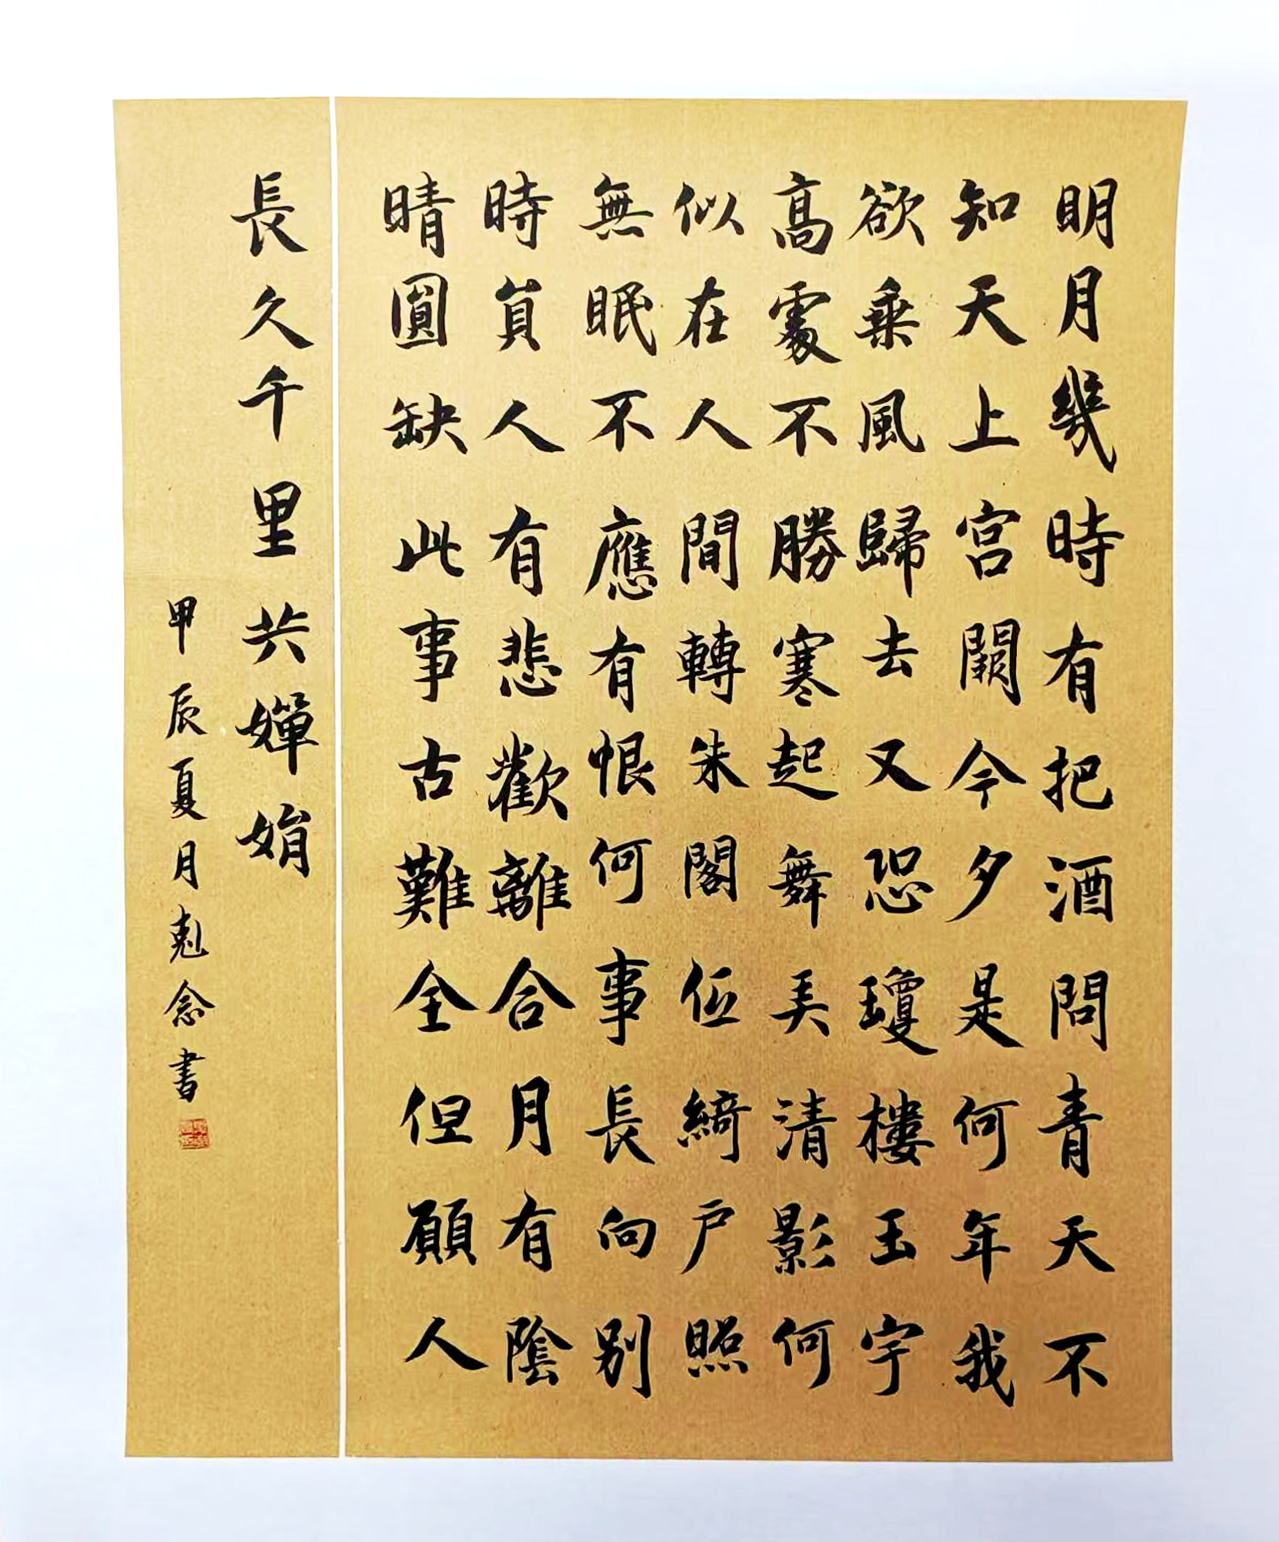 明月幾時有把酒問青天不
知天上宮闕今夕是何年我
欲乗風歸去又恐瓊樓玉宇
高處不勝寒起舞弄清影何
似在人間轉朱閣低綺户照
無眠不應有恨何事長向别
時負人有悲歡離合月有陰
晴圓缺此事古難全但願人
長久千里共嬋娟
甲辰夏月剋念書